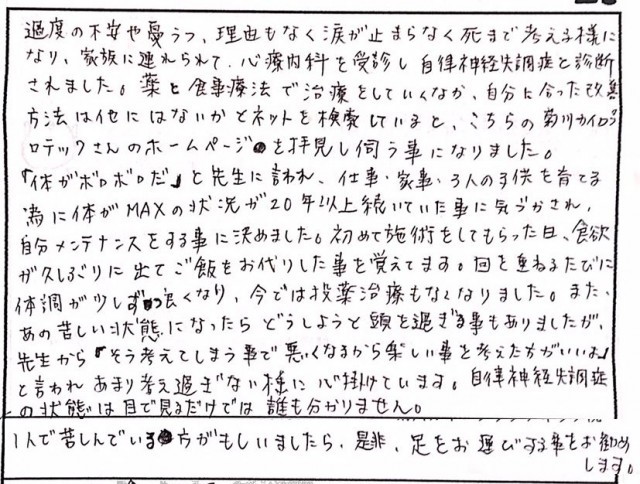 過度の不安や憂うつ、理由もなく涙が止まらなく死まで考える様に
なり、家族に連れられて、心療内科を受診し自律神経失調症と診断
されました。薬と食事療法で治療をしていくなか、自分に合った改善
方法は他にはないかとネットを検索していると、こちらの菊川カイロプ
ラロテックさんのホームページを拝見し伺う事になりました。
「体がボロボロだ」と先生に言われ、仕事・家事・3人の子供を育てる
為に体がMAXの状況が20年以上続いていた事に気づかされ、
自分メンテナンスをする事に決めました。初めて施術をしてもらった日、食欲
が久しぶりに出てご飯をお代りした事を覚えてます。回を重ねるたびに
体調が少しずつ良くなり、今では投薬治療もなくなりました。また、
あの苦しい状態になったらどうしようと頭を過ぎる事もありましたが、
先生から「そう考えてしまう事で悪くなるから楽しい事を考えた方がいいよ」
と言われあまり考え過ぎない様に心掛けています。自律神経失調症
の状態は目で見るだけでは誰も分かりません。
1人で苦しんでいる方がもしいましたら、是非、足をお運びする事をお勧め
します。